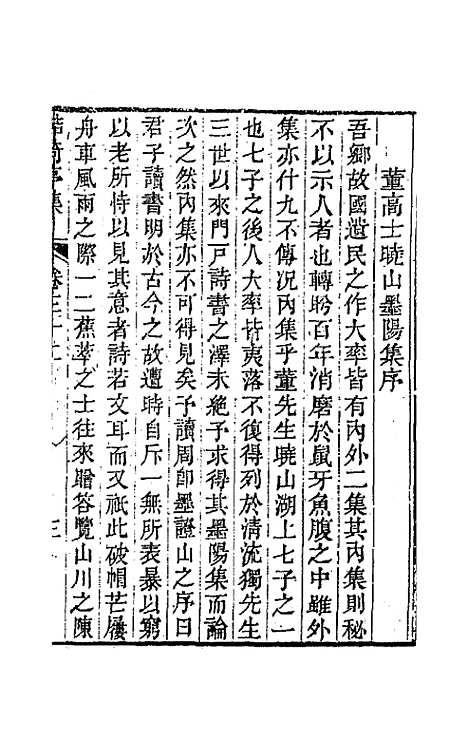 董高士曉山墨陽集序
吾鄉故國遺民之作大率皆有內外二集其內集則秘
不以示人者也轉盻百年消磨於鼠牙魚腹之中雖外
集亦什九不傳况內集乎董先生曉山湖上七子之一
也七子之後人大率皆夷落不復得列於清流獨先生
三世以來門戸詩書之澤未絶予求得其墨陽集而論
次之然內集亦不可得見矣予讀周即墨證山之序曰
君子讀書明於古今之故遭時自斥一無所表暴以窮
以老所恃以見其意者詩若文耳而又祇此破帽芒屨
舟車風雨之際一二蕉萃之士往來贈答覽山川之陳
鮚埼亭集
卷三十二
三